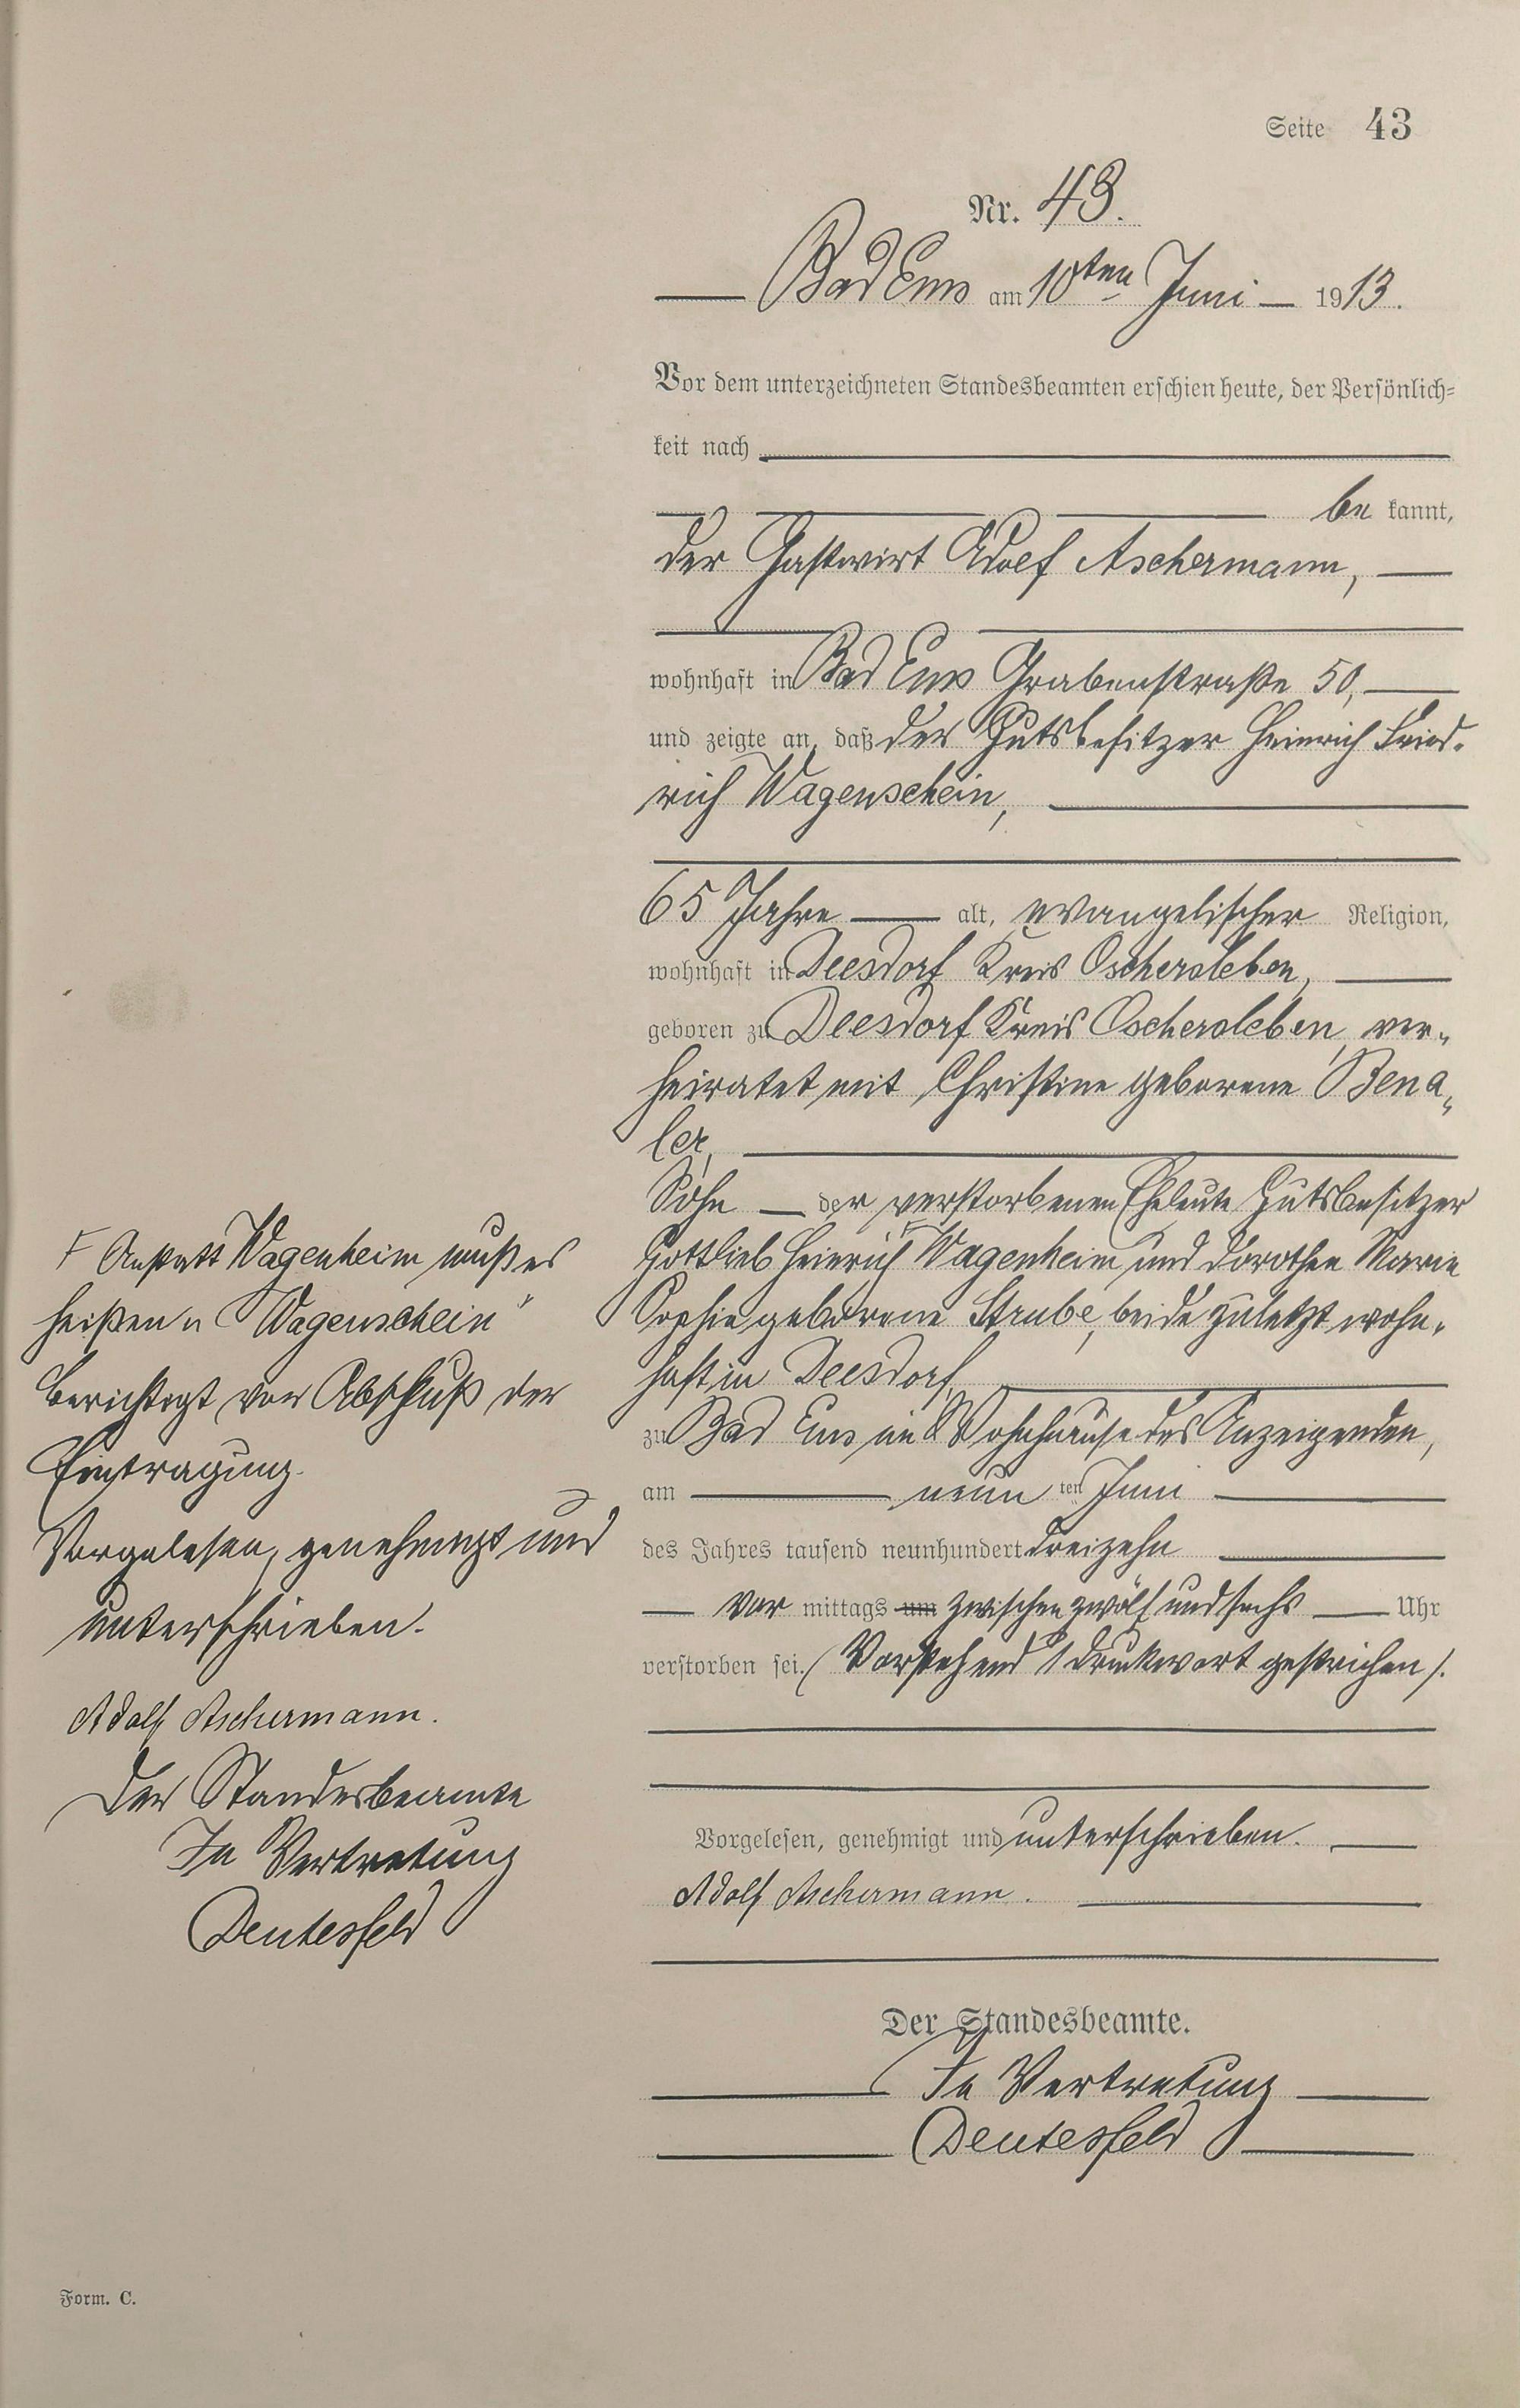 Seite 43
Nr. 43.
Bad Ems am 10ten Juni 1913.
Vor dem unterzeichneten Standesbeamten erschien heute, der Persönlich=
keit nach
be kannt,
der Gastwirt Adolf Aschermann,
wohnhaft in Bad Ems Grabenstraße 50,
und zeigte an, daß der Gutsbesitzer Heinrich Fried-
rich Wagenschein,
65 Jahre alt, evangelischer Religion,
wohnhaft in Deesdorf Kreis Oschersleben,
geboren zu Deesdorf Kreis Oschersleben, ver-
heiratet mit Christine geborene Bena-
ler,
Sohn der verstorbenen Eheleute Gutsbesitzer
Gottlieb Heinrich ⊢ Wagenheim und Dorothee Marie
Sophie geborene Strube, beide zuletzt wohn-
haft in Deesdorf,
zu Bad Ems im Wohnhause des Anzeigenden,
am neun ten Juni
des Jahres tausend neunhundert dreizehn
vor mittags um zwischen zwölf und sechs Uhr
verstorben sei. (Vorstehend 1 Druckwort gestrichen).
Vorgelesen, genehmigt und unterschrieben.
Adolf Aschermann.
Der Standesbeamte.
In Vertretung
Deutesfeld
⊢ Anstatt Wagenheim muß es
heißen „Wagenschein"
Berichtigt vor Abschluß der
Eintragung.
Vorgelesen, genehmigt und
unterschrieben.
Adolf Aschermann.
Der Standesbeamte
In Vertretung
Deutesfeld
Form. C.